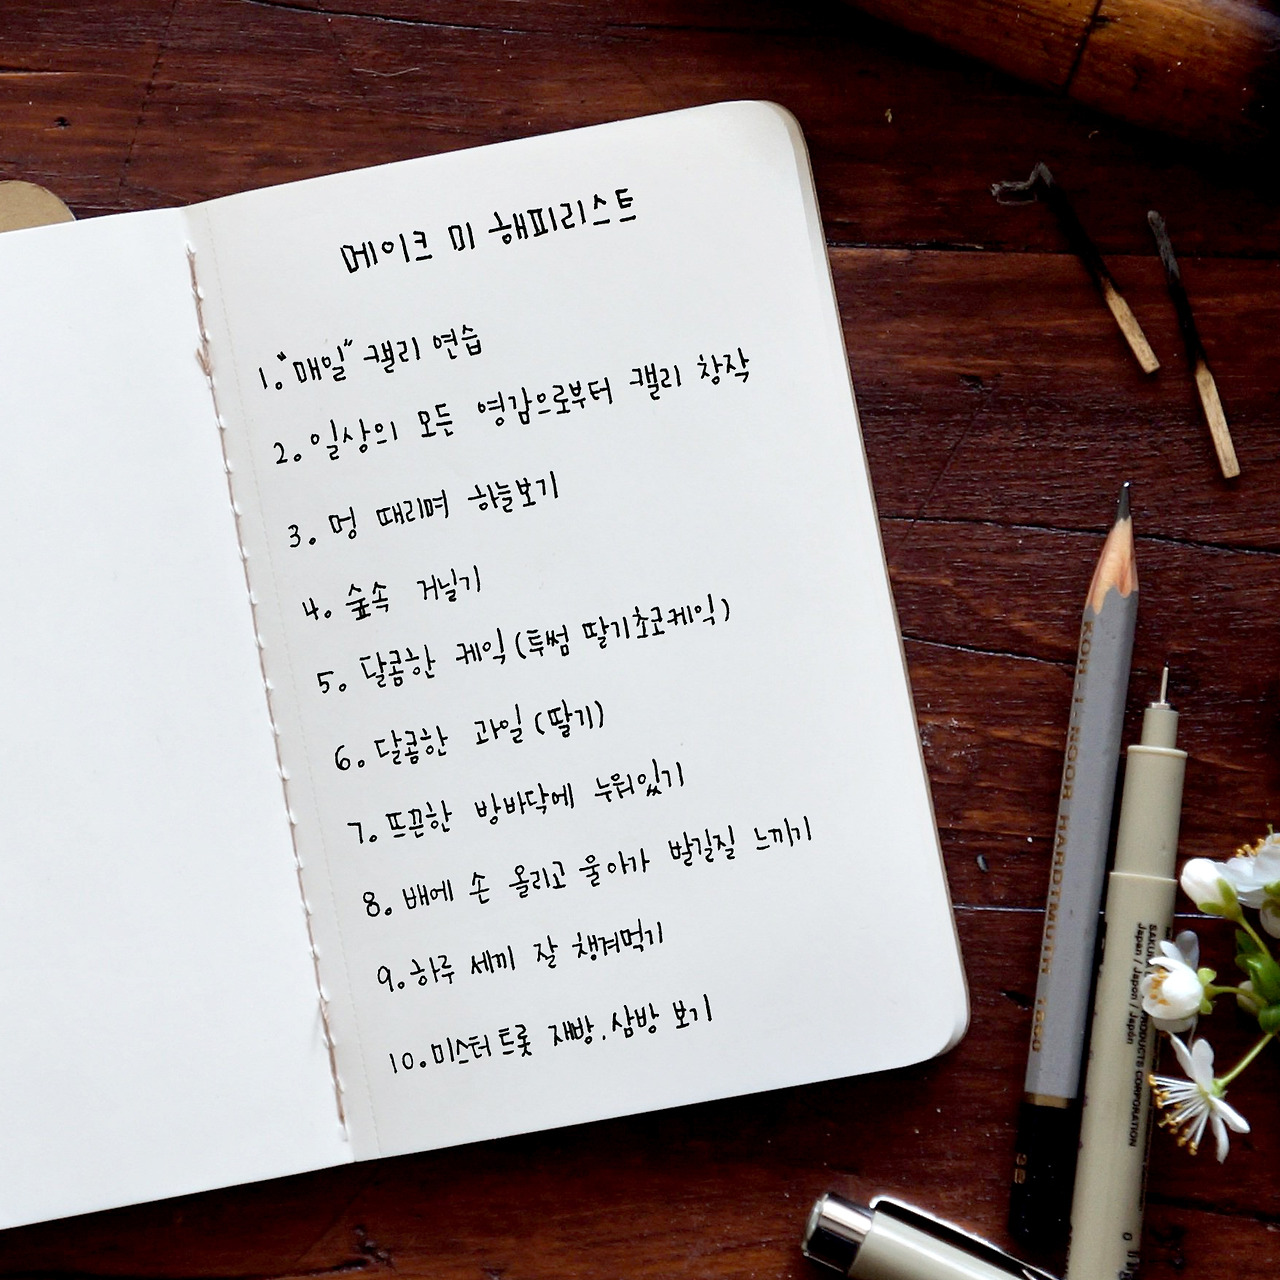 메이크 미 해피리스트
1. "매일" 캘리 연습
2. 일상의 모든 영감으로부터 캘리 창작
3. 멍 때리며 하늘보기
4. 숲속 거닐기
5. 달콤한 케익(투썸 딸기초코케익)
6. 달콤한 과일(딸기)
7. 뜨끈한 방바닥에 누워있기
8. 배에 손 올리고 울아가 발길질 느끼기
9. 하루 세끼 잘 챙겨먹기
10. 미스터트롯 재방, 삼방 보기
KOH-I-NOOR HARDTMUTH 1860
SAKURA PRODUCTS CORPORATION
Japan / Japon / Japón